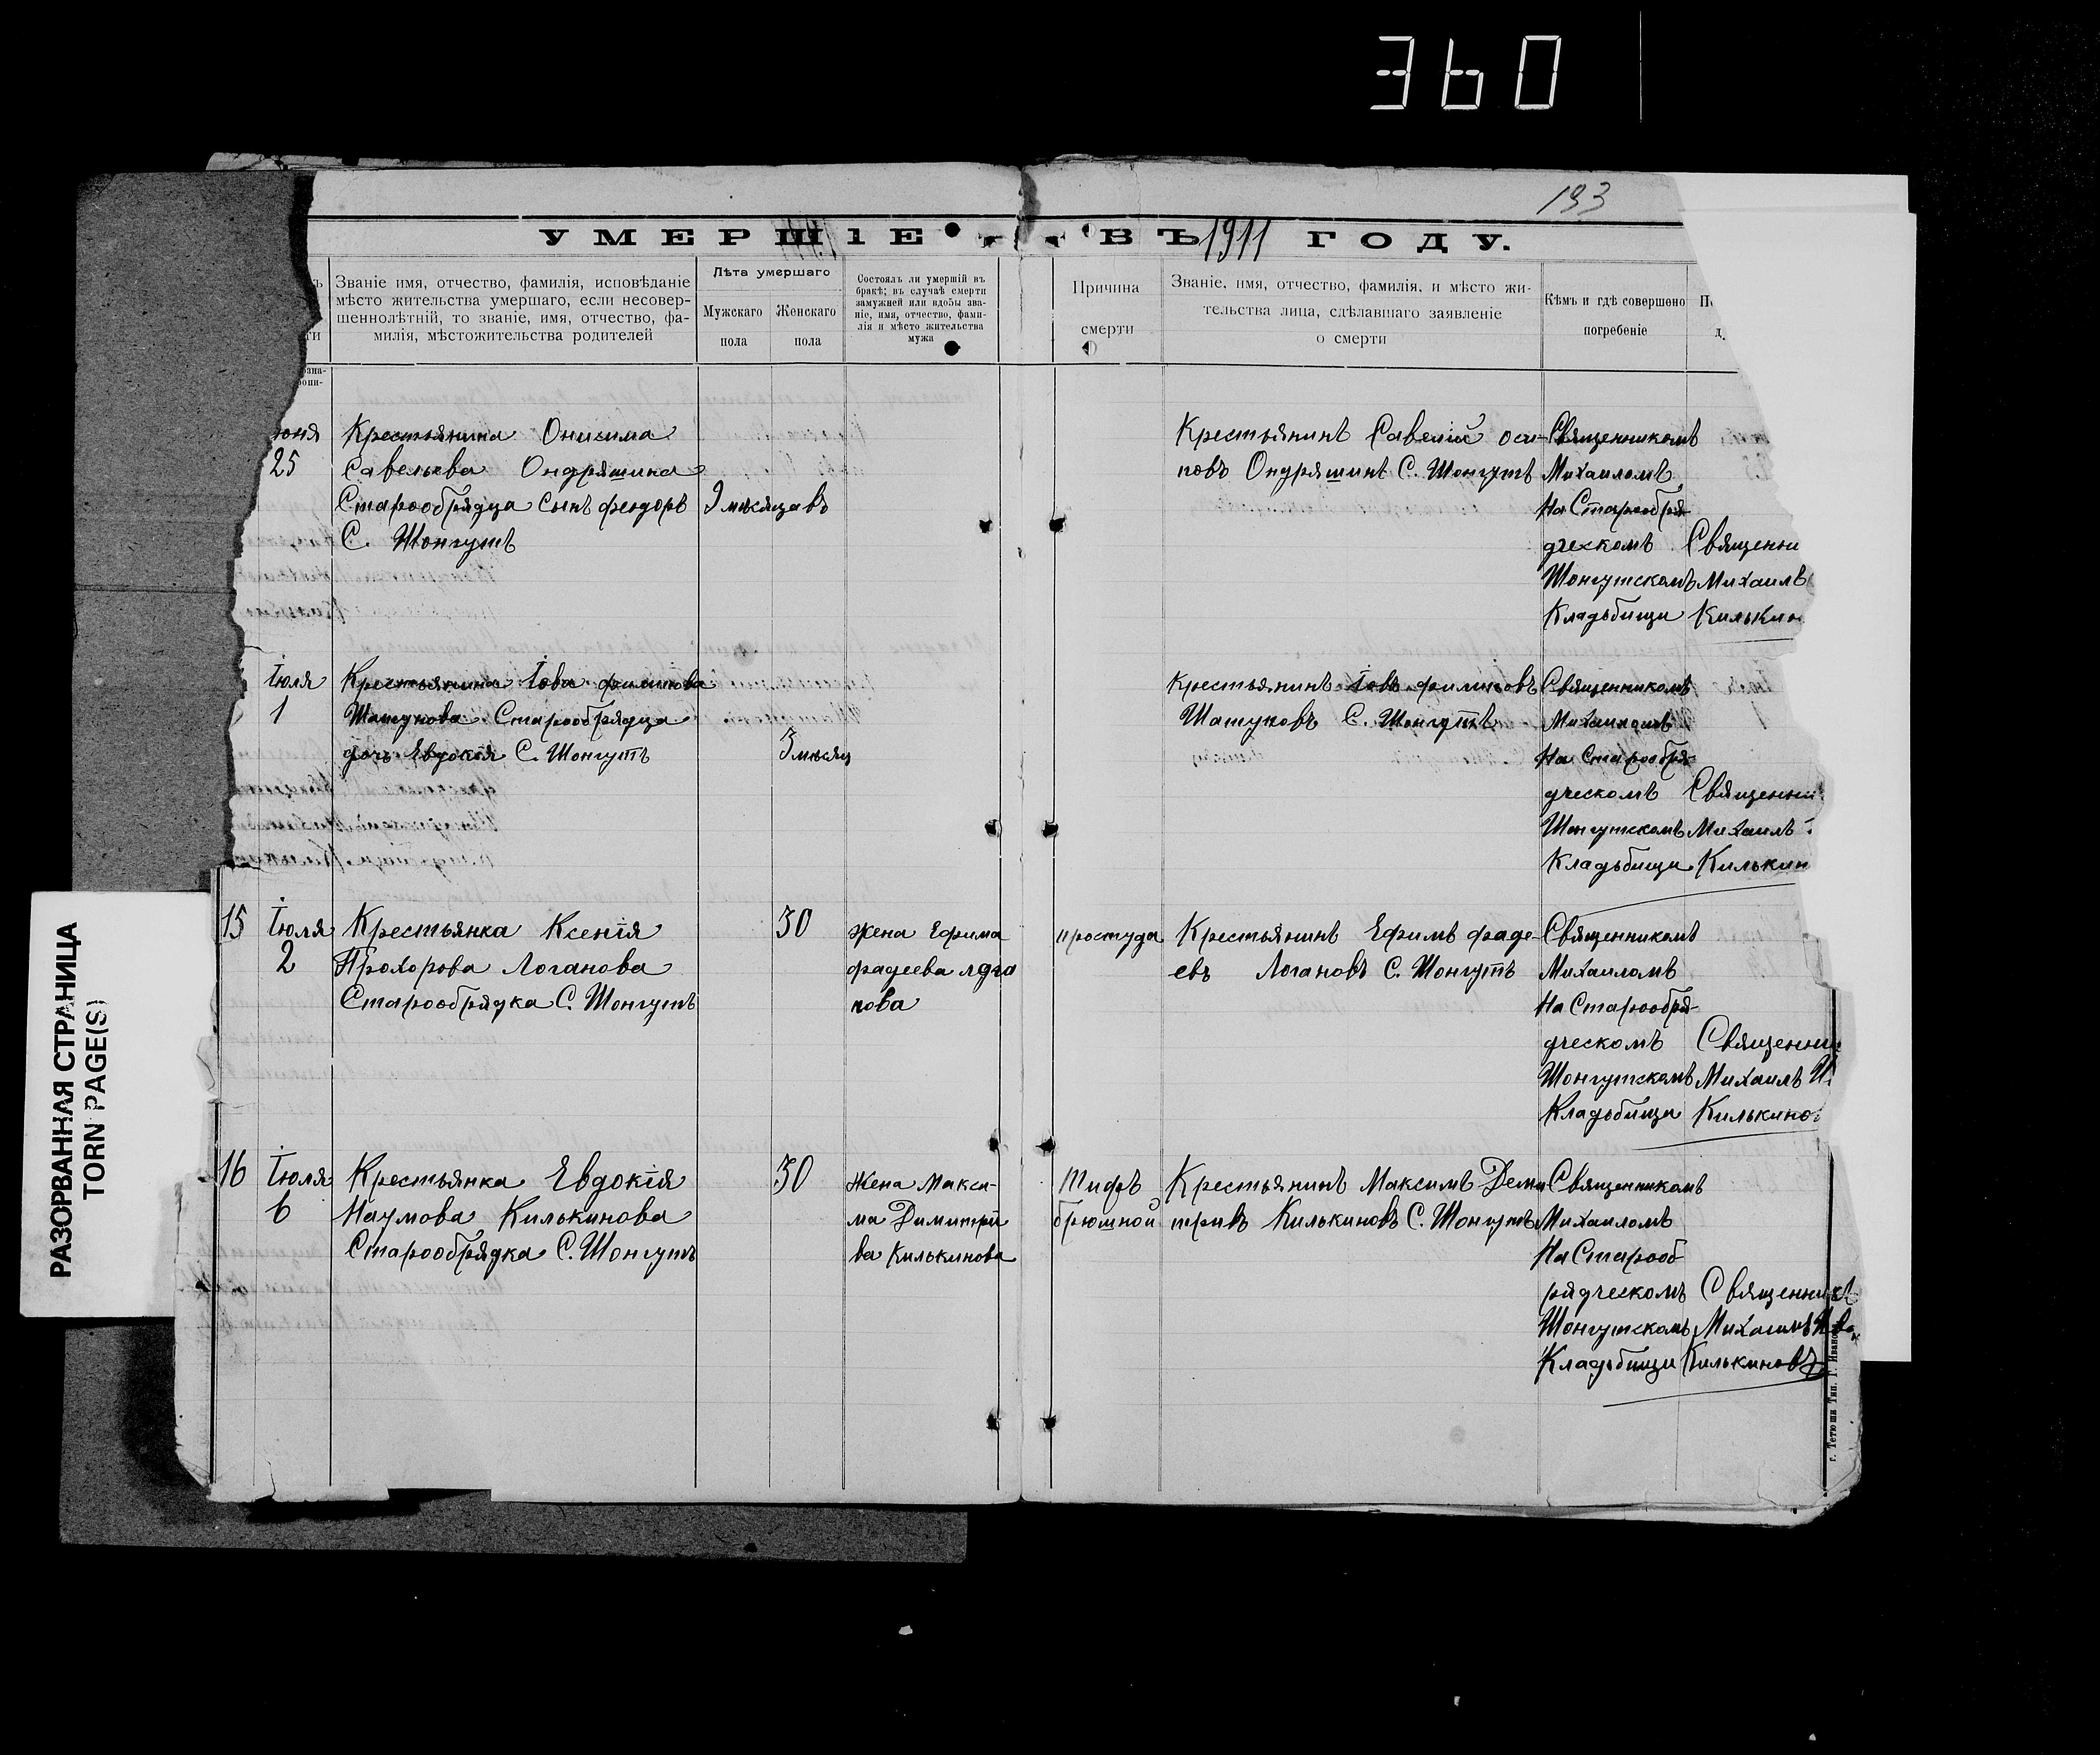 360
193
УМЕРШІЕ ВЪ 1911 ГОДУ.
Званіе имя, отчество, фамилія, исповѣданіе
мѣсто жительства умершаго, если несовер-
шеннолѣтній, то званіе, имя, отчество, фа-
милія, мѣстожительства родителей
Лѣта умершаго
Мужскаго
пола
Женскаго
пола
Состоялъ ли умершій въ
бракѣ; въ случаѣ смерти
замужней или вдовы зва-
ніе, имя, отчество, фами-
лія и мѣсто жительства
мужа
Причина
смерти
Званіе, имя, отчество, фамилія, и мѣсто жи-
тельства лица, сдѣлавшаго заявленіе
о смерти
Кѣмъ и гдѣ совершено
погребеніе
юня
25
Крестьянина Онисима
Савельева Ондряшина
Старообрядца сынъ феодоръ
С. Шонгутъ
9 мѣсяцавъ
Крестьянинъ Савелій оси-
повъ Ондряшинъ С. Шонгутъ
Священникомъ
Михаиломъ
На Старообря-
дческомъ
Шонгутскомъ
Кладьбищи
Священни
Михаилъ
Килькин
Іюля
1
Крестьянина Іова филипова
Шатунова Старообрядца
дочь Евдокія С. Шонгутъ
3 мѣсяц
Крестьянинъ Іовъ филиповъ
Шатуновъ С. Шонгутъ
Священникомъ
Михаиломъ
На Старообря-
дческомъ
Шонгутскомъ
Кладьбищи
Священни
Михаилъ
Килькин
15
Іюля
2
Крестьянка Ксенія
Прохорова Логанова
Старообрядка С. Шонгутъ
30
жена Ефима
фадеева лога
нова
простуда
Крестьянинъ Ефимъ фаде-
евъ Логановъ С. Шонгутъ
Священникомъ
Михаиломъ
На Старообря-
дческомъ
Шонгутскомъ
Кладьбищи
Священни
Михаилъ И.
Килькинов
16
Іюля
6
Крестьянка Евдокія
Наумова Килькинова
Старообрядка С. Шонгутъ
30
Жена Макси-
ма Димитрі
ва Килькинова
Тифъ
брюшной
Крестьянинъ Максимъ Деми
тривъ Килькиновъ С. Шонгутъ
Священникомъ
Михаиломъ
На Старооб-
рядческомъ
Шонгутскомъ
Кладьбищи
Священникъ
Михаилъ
Килькиновъ
г. Тетюши Тип.
РАЗОРВАННАЯ СТРАНИЦА
TORN PAGE(S)